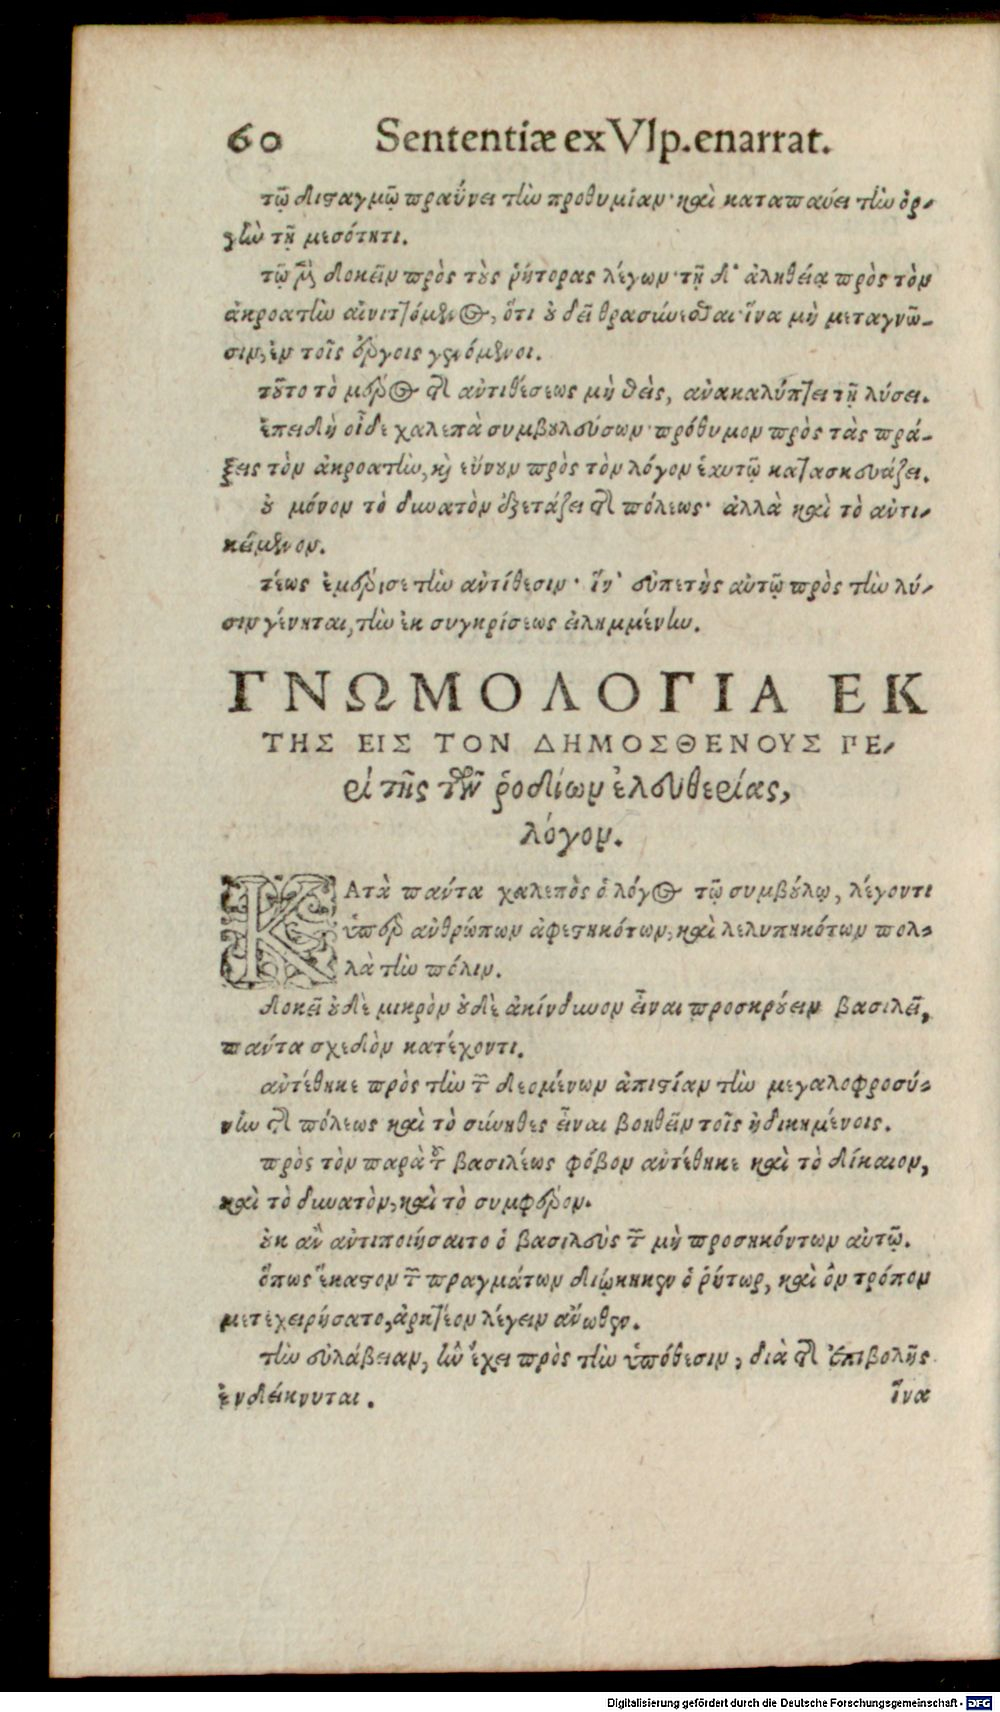 60 Sententiæ ex Vlp. enarrat.
τῷ διςαγμῷ πραΰνει τὴν προθυμίαν· καὶ καταπαύει τὴν ὀρ-
γὴν τῇ μεσότητι.
τῷ μὲν δοκεῖν πρὸς τοὺς ῥήτορας λέγων· τῇ δ᾽ ἀληθείᾳ πρὸς τὸν
ἀκροατὴν αἰνιττόμενος, ὅτι οὐ δεῖ θρασύνεσθαι· ἵνα μὴ μεταγνῶ-
σιν, ἐν τοῖς ἔργοις γενόμενοι.
τοῦτο τὸ μέρος τῆς ἀντιθέσεως μὴ θεὶς, ἀνακαλύπτει τῇ λύσει.
ἐπειδὴ οἶδε χαλεπὰ συμβουλεύσων· πρόθυμον πρὸς τὰς πρά-
ξεις τὸν ἀκροατὴν, καὶ εὔνουν πρὸς τὸν λόγον ἑαυτῷ κατασκευάζει.
οὐ μόνον τὸ δυνατὸν ἐξετάζει τῆς πόλεως· ἀλλὰ καὶ τὸ ἀντι-
κείμενον.
τέως ἐμέρισε τὴν ἀντίθεσιν· ἵν᾽ εὐπετὴς αὐτῷ πρὸς τὴν λύ-
σιν γένηται, τὴν ἐκ συγκρίσεως εἰλημμένην.
ΓΝΩΜΟΛΟΓΙΑ ΕΚ
ΤΗΣ ΕΙΣ ΤΟΝ ΔΗΜΟΣΘΕΝΟΥΣ ΠΕ-
ρὶ τῆς τῶν ῥοδίων ἐλευθερίας,
λόγον.
ΚΑτὰ πάντα χαλεπὸς ὁ λόγος τῷ συμβούλῳ, λέγοντι
ὑπὲρ ἀνθρώπων ἀφεςηκότων, καὶ λελυπηκότων πολ-
λὰ τὴν πόλιν.
δοκεῖ οὐδὲ μικρὸν οὐδὲ ἀκίνδυνον εἶναι προσκρούειν βασιλεῖ,
πάντα σχεδὸν κατέχοντι.
ἀντέθηκε πρὸς τὴν τῶν δεομένων ἀπιςίαν τὴν μεγαλοφροσύ-
νην τῆς πόλεως καὶ τὸ σύνηθες εἶναι βοηθεῖν τοῖς ἠδικημένοις.
πρὸς τὸν παρὰ τοῦ βασιλέως φόβον ἀντέθηκε καὶ τὸ δίκαιον,
καὶ τὸ δυνατὸν, καὶ τὸ συμφέρον.
οὐκ ἂν ἀντιποιήσαιτο ὁ βασιλεὺς τῶν μὴ προσηκόντων αὐτῷ.
ὅπως ἕκαςον τῶν πραγμάτων διῴκηκεν ὁ ῥήτωρ, καὶ ὃν τρόπον
μετεχειρήσατο, ἀρκτέον λέγειν ἄνωθεν.
τὴν εὐλάβειαν, ἣν ἔχει πρὸς τὴν ὑπόθεσιν, διὰ τῆς ἐπιβολῆς
ἐνδείκνυται. ἵνα
Digitalisierung gefördert durch die Deutsche Forschungsgemeinschaft - DFG